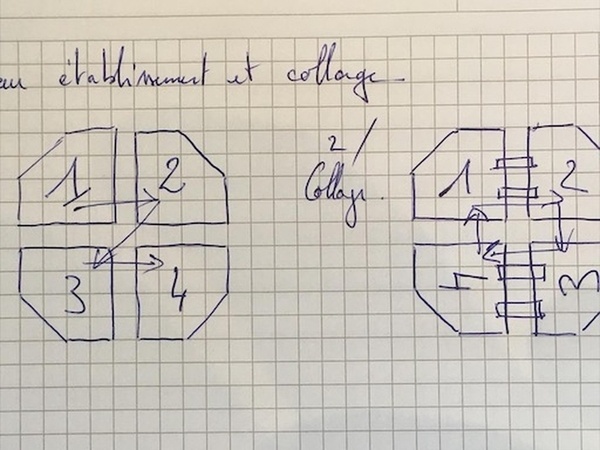 au établissement et collage
1 2
2/
Collage.
1 2
3 4
4 3